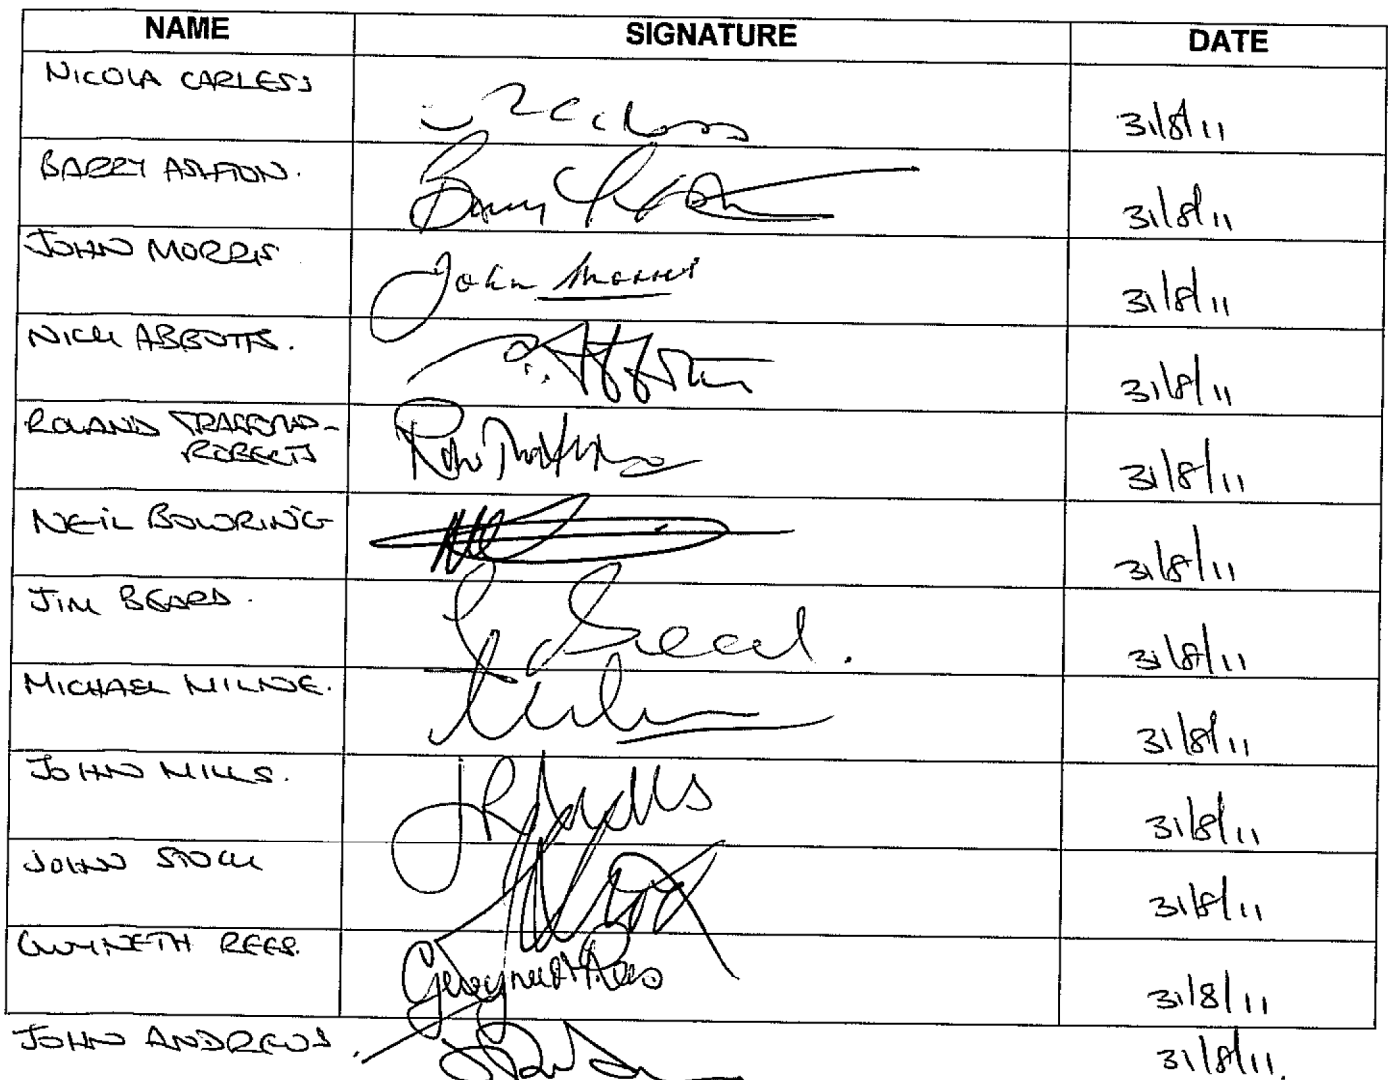 NAME SIGNATURE DATE
NICOLA CARLESS 31/8/11
BARRY ASHTON. Barry 31/8/11
JOHN MORRIS John Morris 31/8/11
NICK ABBOTTS. 31/8/11
ROLAND TRAFFORD-
ROBERTS 31/8/11
NEIL BOWRING 31/8/11
JIM BEARD. J Beard. 31/8/11
MICHAEL MILNE. 31/8/11
JOHN MILLS. JR Mills 31/8/11
JOHN STOCK 31/8/11
GWYNETH REES. Gwyneth Rees 31/8/11
JOHN ANDREWS. 31/8/11.